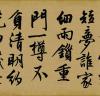 短夢誰家
細雨鎖重
門一樽不
負清明約